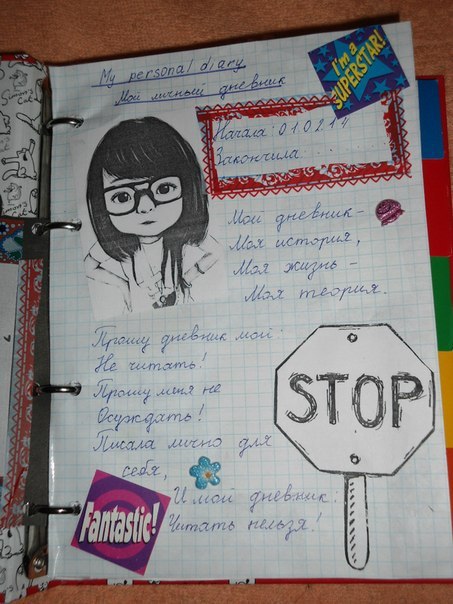 My personal diary
Мой личный дневник
I'm a
SUPERSTAR!
Начала: 01.02.14
Закончила......
Мой дневник-
Моя история,
Моя жизнь -
Моя теория.
Прошу дневник мой:
Не читать!
Прошу меня не
Осуждать!
Писала лично для
себя,
И мой дневник:
Читать нельзя!
STOP
Fantastic!